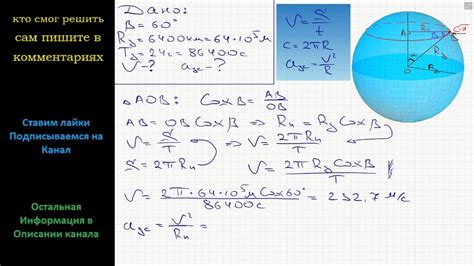 кто смог решить
сам пишите в
комментариях
Ставим лайки
Подписываемся на
Канал
Остальная
Информация в
Описании канала
Дано:
B = 60°
Rз = 6400км = 64·10⁵м
Tз = 24с = 86400с
V-? aцс-?
V = S/t
c = 2πR
aцс = V²/R
△AOB: CosB = AB/OB
AB = OB CosB ⇒ Rн = Rз CosB
V = S/T V = 2πRн/T
S = 2πRн V = 2πRз CosB/T
V = 2π·64·10⁵м Cos60°/86400с = 232,7 м/с
aцс = V²/Rн =
A
Rн
B
O
Rз